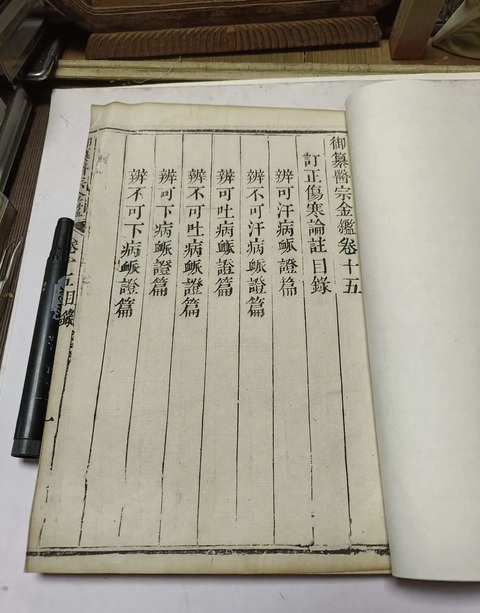 御纂醫宗金鑑卷十五
訂正傷寒論註目錄
辨可汗病脈證篇
辨不可汗病脈證篇
辨可吐病脈證篇
辨不可吐病脈證篇
辨可下病脈證篇
辨不可下病脈證篇
御纂醫宗金鑑 卷十五目錄
一